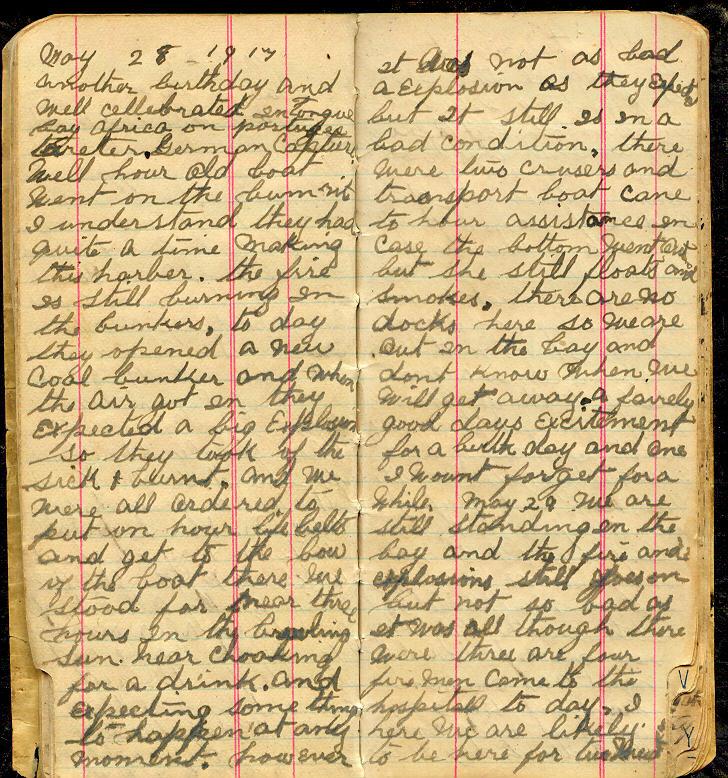 May 28 1917
another birthday and
well cellebrated in tongue
bay africa on portugee
German
Well hour old boat
went on the bum nit
I understand they had
quite a time making
this harber. the fire
is still burning in
the bunkers, to day
they opened a new
coal bunker and when
the air got in they
Expected a big Explosion
so they took of the
sick & burnt. and we
were all ordered to
put on hour life belts
and get to the bow
of the boat there we
stood for near three
hours in the
sun. near choaking
for a drink. and
expecting some thing
to happen at any
moment. however
it was not as bad
a Explosion as they Expect
but it still is in a
bad condition, there
were two crusers and
transport boat cane
to hour assistance in
case the bottom went out
but she still floats and
smokes, there are no
docks here so we are
out in the bay and
dont know when we
will get away. a fairely
good days Excitement
for a birth day and one
I wount forget for a
while. May 29 we are
still standing in the
bay and the fire and
explosions still goes on
but not so bad as
it was all though there
were three are four
fire men came to the
hospital to day, I
here we are likely
to be here for two